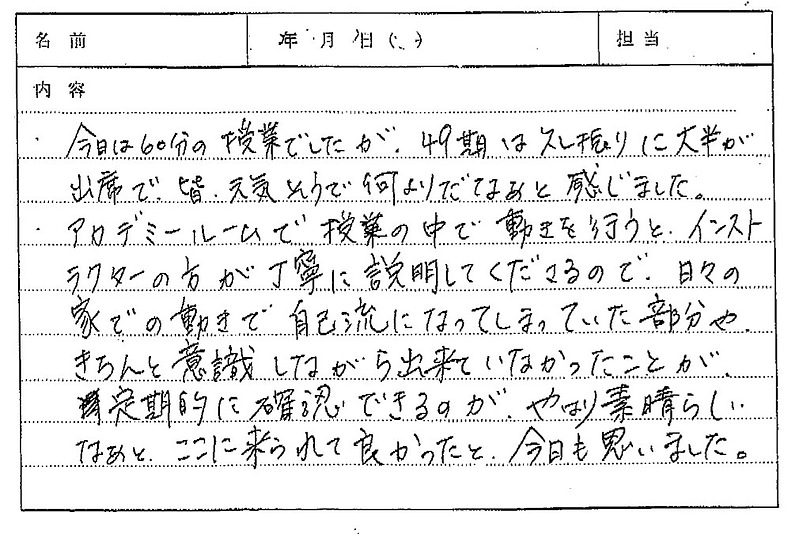 名前 年 月 日( ) 担当
内容
・今日は60分の授業でしたが、49期は久し振りに大半が
出席で、皆、元気そうで何よりだなぁと感じました。
・アカデミールームで授業の中で動きを行うと、インスト
ラクターの方が丁寧に説明してくださるので、日々の
家での動きで自己流になってしまっていた部分や、
きちんと意識しながら出来ていなかったことが、
定期的に確認できるのが、やはり素晴らしい
なぁと、ここに来られて良かったと、今日も思いました。